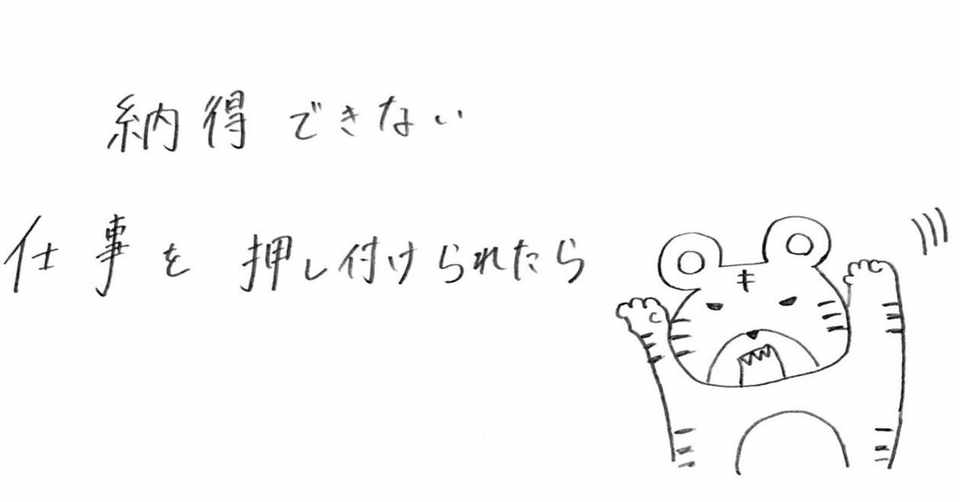 納得できない
仕事を押し付けられたら